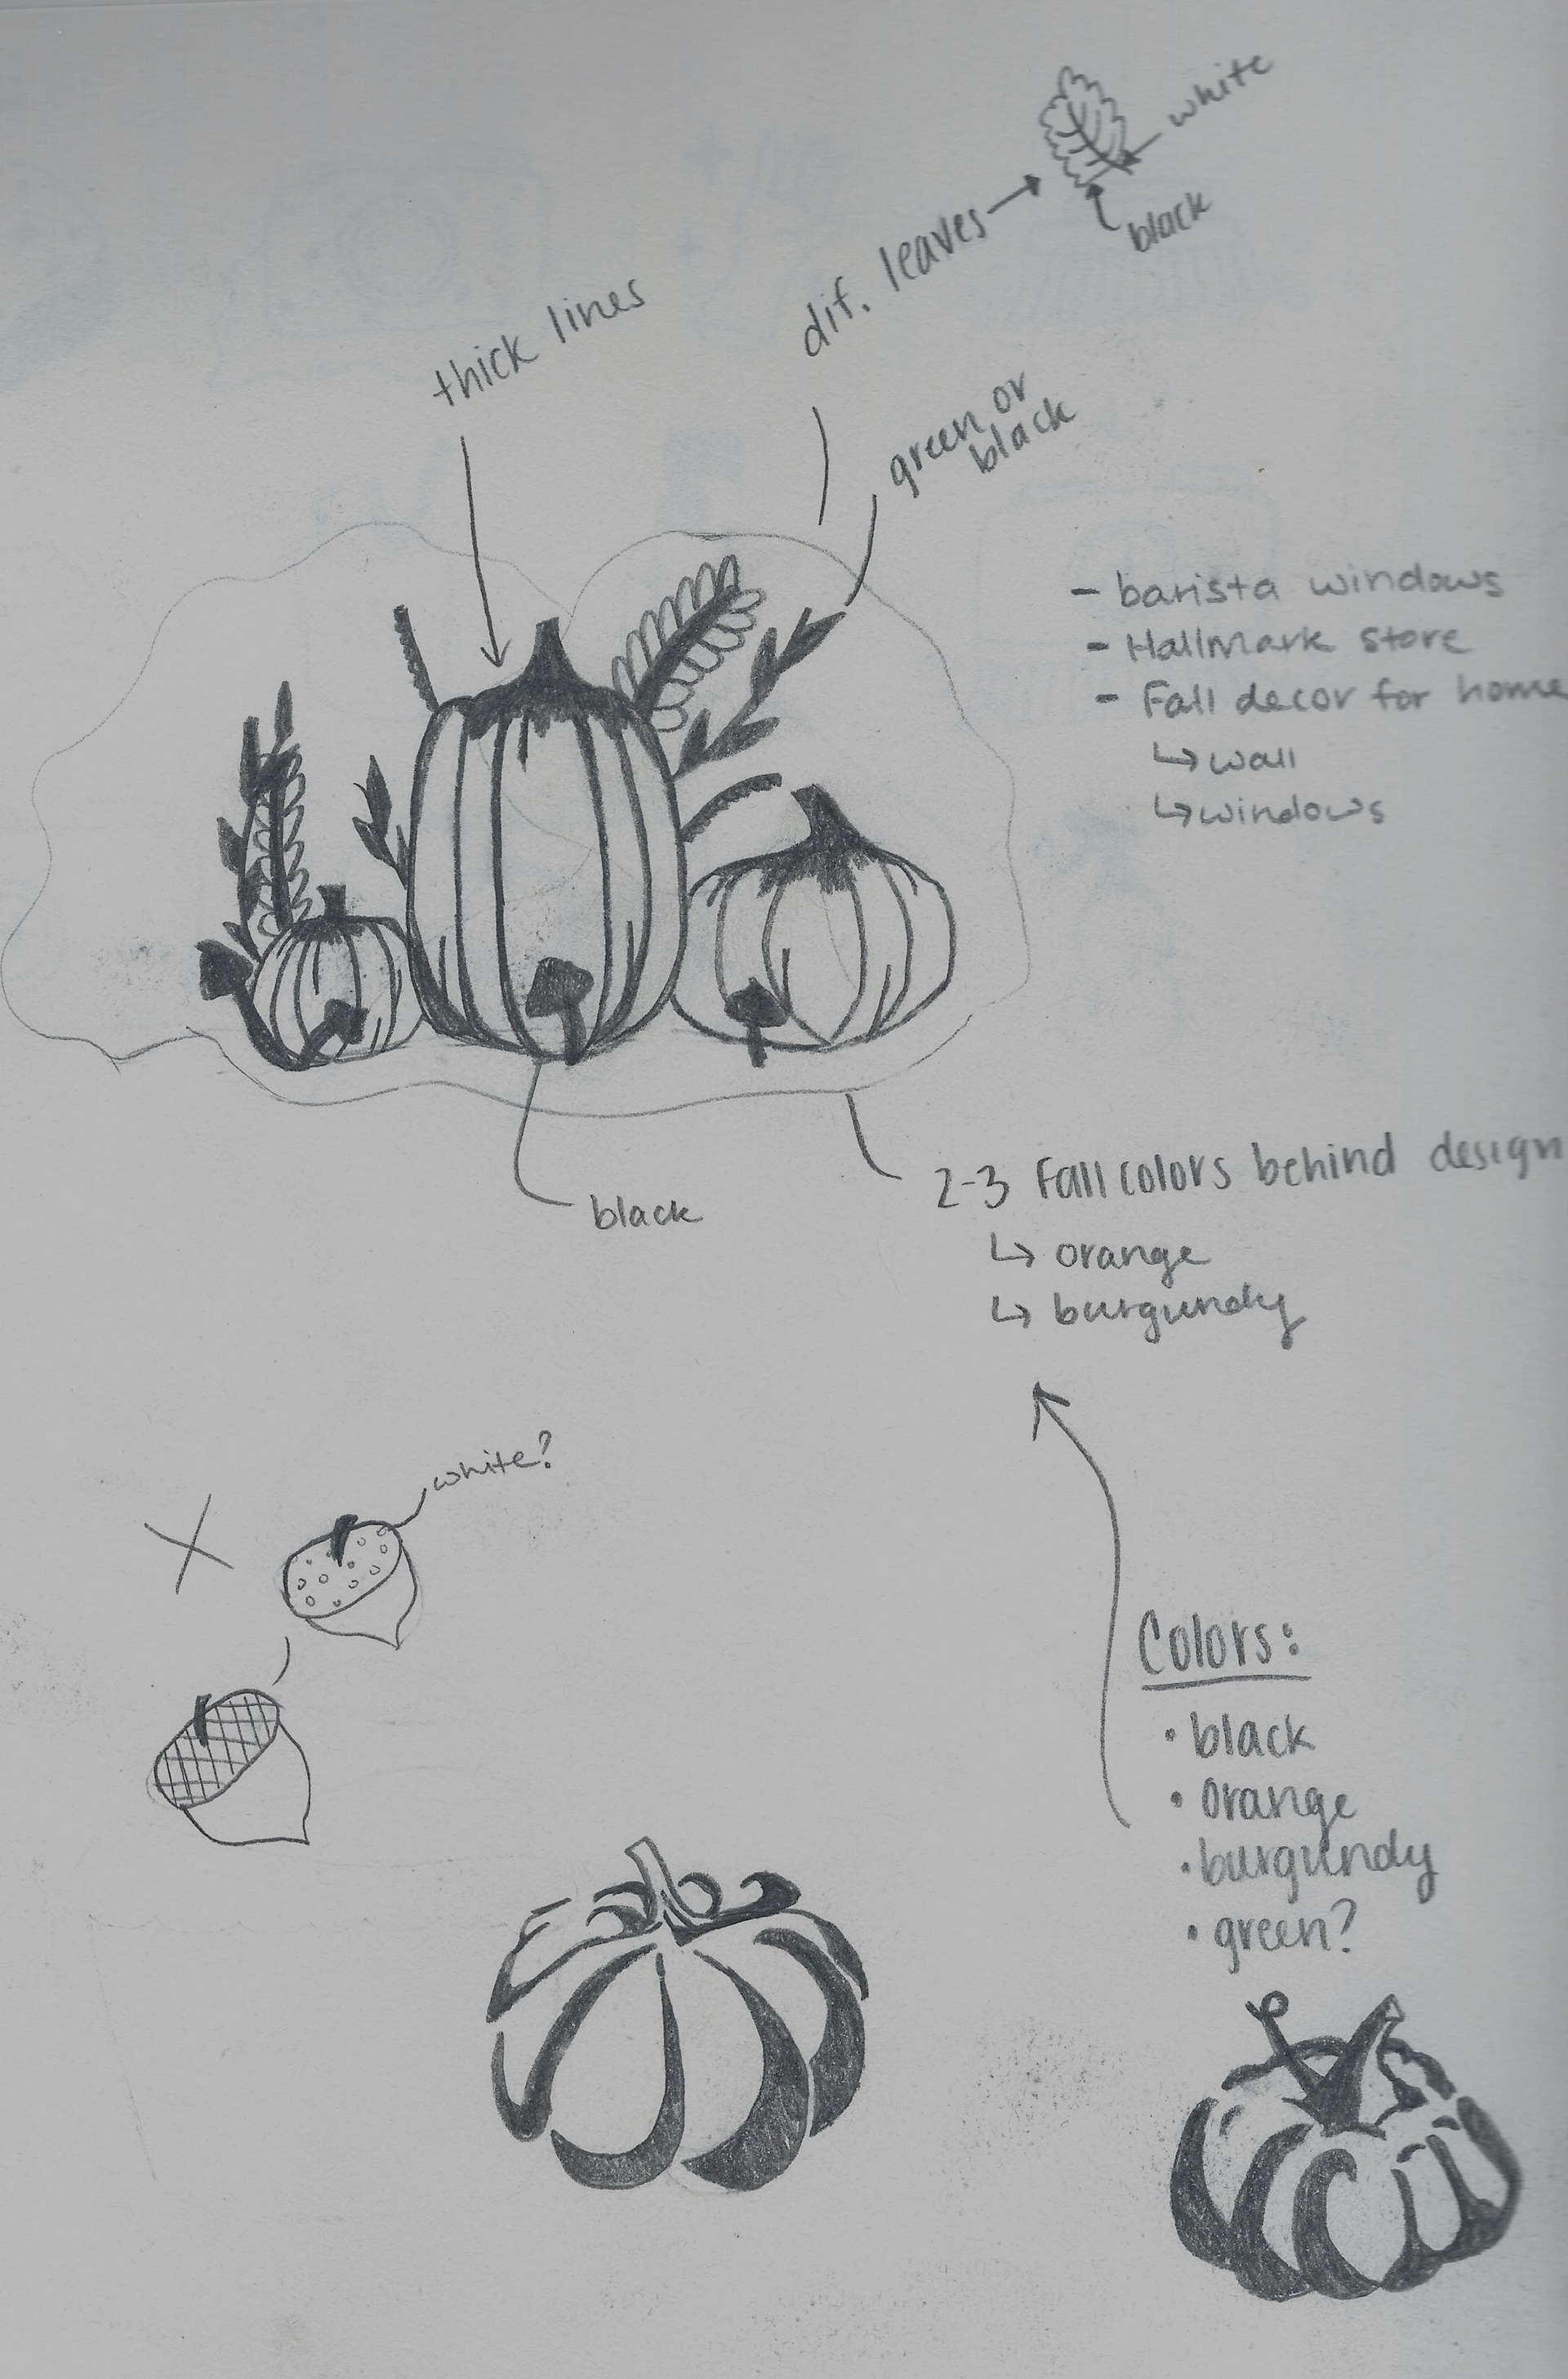 white
black
dif. leaves
thick lines
green or
black
- barista windows
- Hallmark store
- Fall decor for home
↳ wall
↳ windows
2-3 Fall colors behind design
↳ orange
↳ burgundy
black
white?
X
Colors:
• black
• orange
• burgundy
• green?